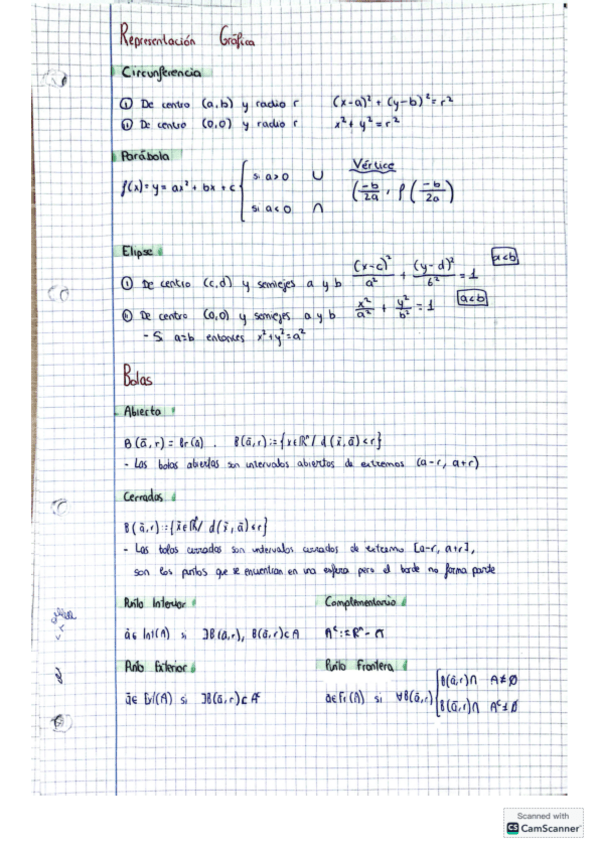 Representación Gráfica
Circunferencia
① De centro (a,b) y radio r (x-a)² + (y-b)² = r²
② De centro (0,0) y radio r x² + y² = r²
Parábola
f(x) = y = ax² + bx + c { si a>0 ∪
si a<0 ∩
Vértice
(-b/2a, f(-b/2a))
Elipse
① De centro (c,d) y semiejes a y b (x-c)²/a² + (y-d)²/b² = 1 a<b
② De centro (0,0) y semiejes a y b x²/a² + y²/b² = 1 a<b
- Si a=b entonces x²+y²=a²
Bolas
Abierta
B(ā,r) = Br(a). B(ā,r):={x∈ℝⁿ/ d(x̄,ā)<r}
- Las bolas abiertas son intervalos abiertos de extremos (a-r, a+r)
Cerradas
B(ā,r):={x̄∈ℝⁿ/ d(x̄,ā)≤r}
- Las bolas cerradas son intervalos cerrados de extremo [a-r, a+r],
son los puntos que se encuentran en una esfera pero el borde no forma parte
Punto Interior
ā∈ Int(A) si ∃B(ā,r), B(ā,r)⊂A
Complementario
Aᶜ:=ℝⁿ - A
Punto Exterior
ā∈ Ext(A) si ∃B(ā,r)⊂Aᶜ
Punto Frontera
a∈Fr(A) si ∀B(ā,r) { B(ā,r)∩ A≠∅
B(ā,r)∩ Aᶜ≠∅
Scanned with
CS CamScanner